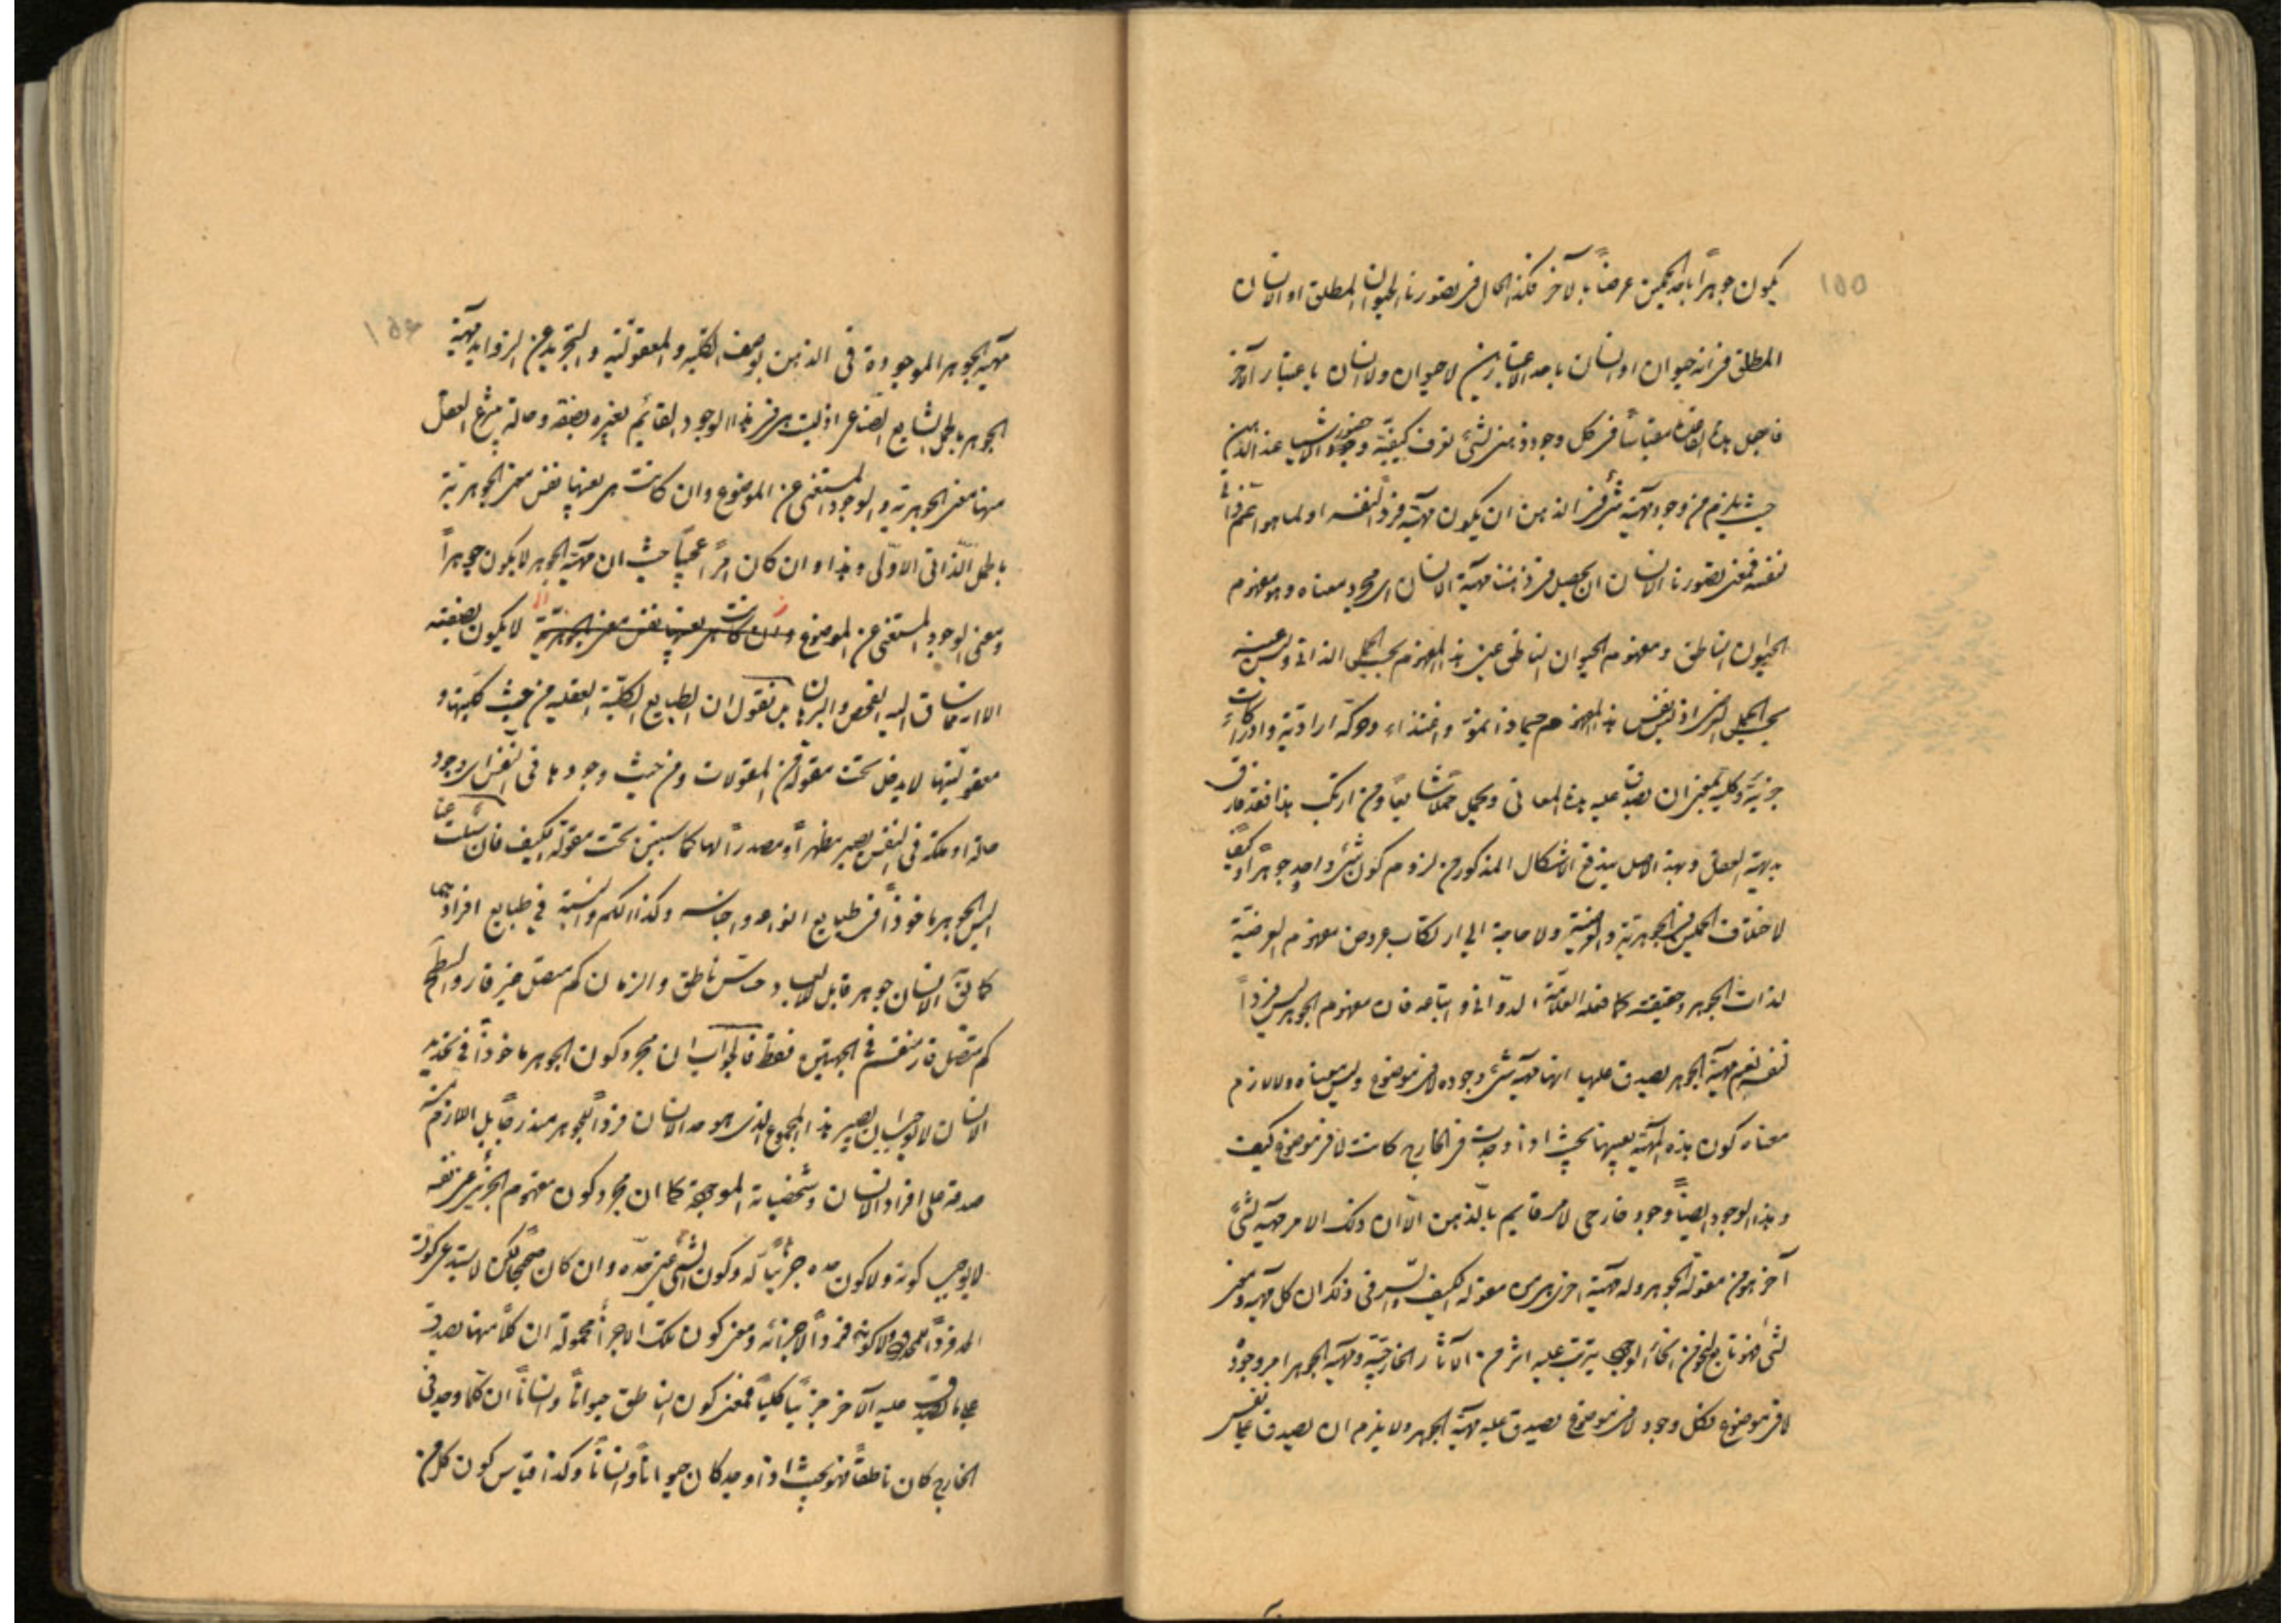 ١٥٥
يكون جوهراً باحد الحملين عرضاً بالآخر فكذا الحال فى تصورنا الحيوان المطلق او الانسان
المطلق فى انه حيوان او انسان باحد الاعتبارين لا حيوان ولا انسان باعتبار الآخر
فاجعل هذه القاعدة مقياساً فى كل وجود ذهنى لشئ تعرف كيفيّة وجود حضور الاشيا عند الذهن
حيث يلزم من وجود مهيّة شئ فى الذهن ان يكون مهيّة فرداً لنفسه او لما هو اعم ذاتى
نفسه فمعنى تصورنا الانسان ان يحصل فى ذهننا مهيّة الانسان اى مجرد معناه وهو مفهوم
الحيوان الناطق ومفهوم الحيوان الناطق عين هذا المفهوم بحسب الحمل الذاتى وليس عينه
بحسب الحمل اذ ليس نفس هذا المفهوم جسماً ذا نموّ واغتذاء وحركة اراديّة وادراكات
جزئيّة وكليّة بمعنى ان يصدق عليه هذه المعانى ويحمل حملاً شايعاً ومن ارتكب هذا فقد فارق
بديهة العقل وبهذا الاصل يندفع الاشكال المذكور من لزوم كون شئ واحد جوهراً وكيفاً
لاختلاف الحملين فى الجوهريّة والعرضيّة ولا حاجة الى ارتكاب عروض مفهوم العرضيّة
لذات الجوهر وحقيقته كما فعله العلامّة الدوّانى واتباعه فان مفهوم الجوهر ليس فرداً
لنفسه نعم مهيّة الجوهر يصدق عليها انها مهيّة شئ وجوده لا فى موضوع وليس معناه ولا لازم
معناه كون هذه المهيّة بعينها بحيث اذا وجدت فى الخارج كانت لا فى موضوع كيف
وهذا الوجود ايضاً وجود خارجى لامر قايم بالذهن الّا ان ذلك الامر مهيّة لشئ
آخر هو من مقولة الجوهر وله مهيّة اخرى هى من مقولة الكيف والسر فى ذلك ان كل مهيّة ومعنى
لشئ فهو تابع لنحو من انحاء الوجود يترتب عليه اثر من الآثار الخارجيّة ومهيّة الجوهر امر وجوده
لا فى موضوع فكل وجود لا فى موضوع يصدق عليه مهيّة الجوهر ولا يلزم ان يصدق على نفس
١٥٦
مهيّة الجوهر الموجودة فى الذهن بوصف الكليّة والمعقوليّة والتجريد عن الزوايد مهيّة
الجوهر بالحمل الشايع الصناعى اذ ليست هى فى هذا الوجود القائم بغيره بصفة وحالة ينتزع العقل
منها معنى الجوهريّة والوجود المستغنى عن الموضوع وان كانت هى بعينها نفس معنى الجوهريّة
بالحمل الذاتى الاوّلى وهذا وان كان امراً عجيباً حيث ان مهيّة الجوهر لا يكون جوهراً
ومعنى الوجود المستغنى عن الموضوع وان كانت هى بعينها نفس معنى الجوهريّة لا يكون بصفته
الا انه مما ساق اليه الفحص والبرهان بل نقول ان الطبايع الكليّة العقليّة من حيث كليتها و
معقوليتها لا يدخل تحت مقولة من المقولات ومن حيث وجودها فى النفس اى وجود
حالة او ملكة فى النفس يصير مظهراً او مصدراً لها كما سيبين تحت مقولة الكيف فان سئلت عنا
اليس الجوهر ماخوذاً فى طبايع انواعه واجناسه وكذا الكم والنسبة فى طبايع افرادهما
كما يق الانسان جوهر قابل للابعاد حسّاس ناطق والزمان كم متصل غير قار والسطح
كم متصّل قار منقسم فى الجهتين فقط فالجواب ان مجرد كون الجوهر ماخوذاً فى تحديد
الانسان لا يوجب ان يصير هذا المجموع الذى هو حد الانسان فرداً للجوهر مندرجاً بل اللازم منه
صدقه على افراد الانسان وشخصياته الموجودة كما ان مجرد كون مفهوم الجزئى عين نفسه
لا يوجب كونه ولا كون حده جزئيّاً له وكون الشئ عين حدّه وان كان صحيحاً لكن لا يستدعى كونه
المحدود ولا كونه فرداً لاجزائه ومعنى كون تلك الاجزاء محمولة ان كلاً منها يصدق
على ما يصدق عليه الآخر جزئيّاً كليّاً فمعنى كون الناطق حيواناً وانساناً ان كلما وجد فى
الخارج كان ناطقاً فهو بحيث اذا وجد كان حيواناً وانساناً وكذا قياس كون كل من